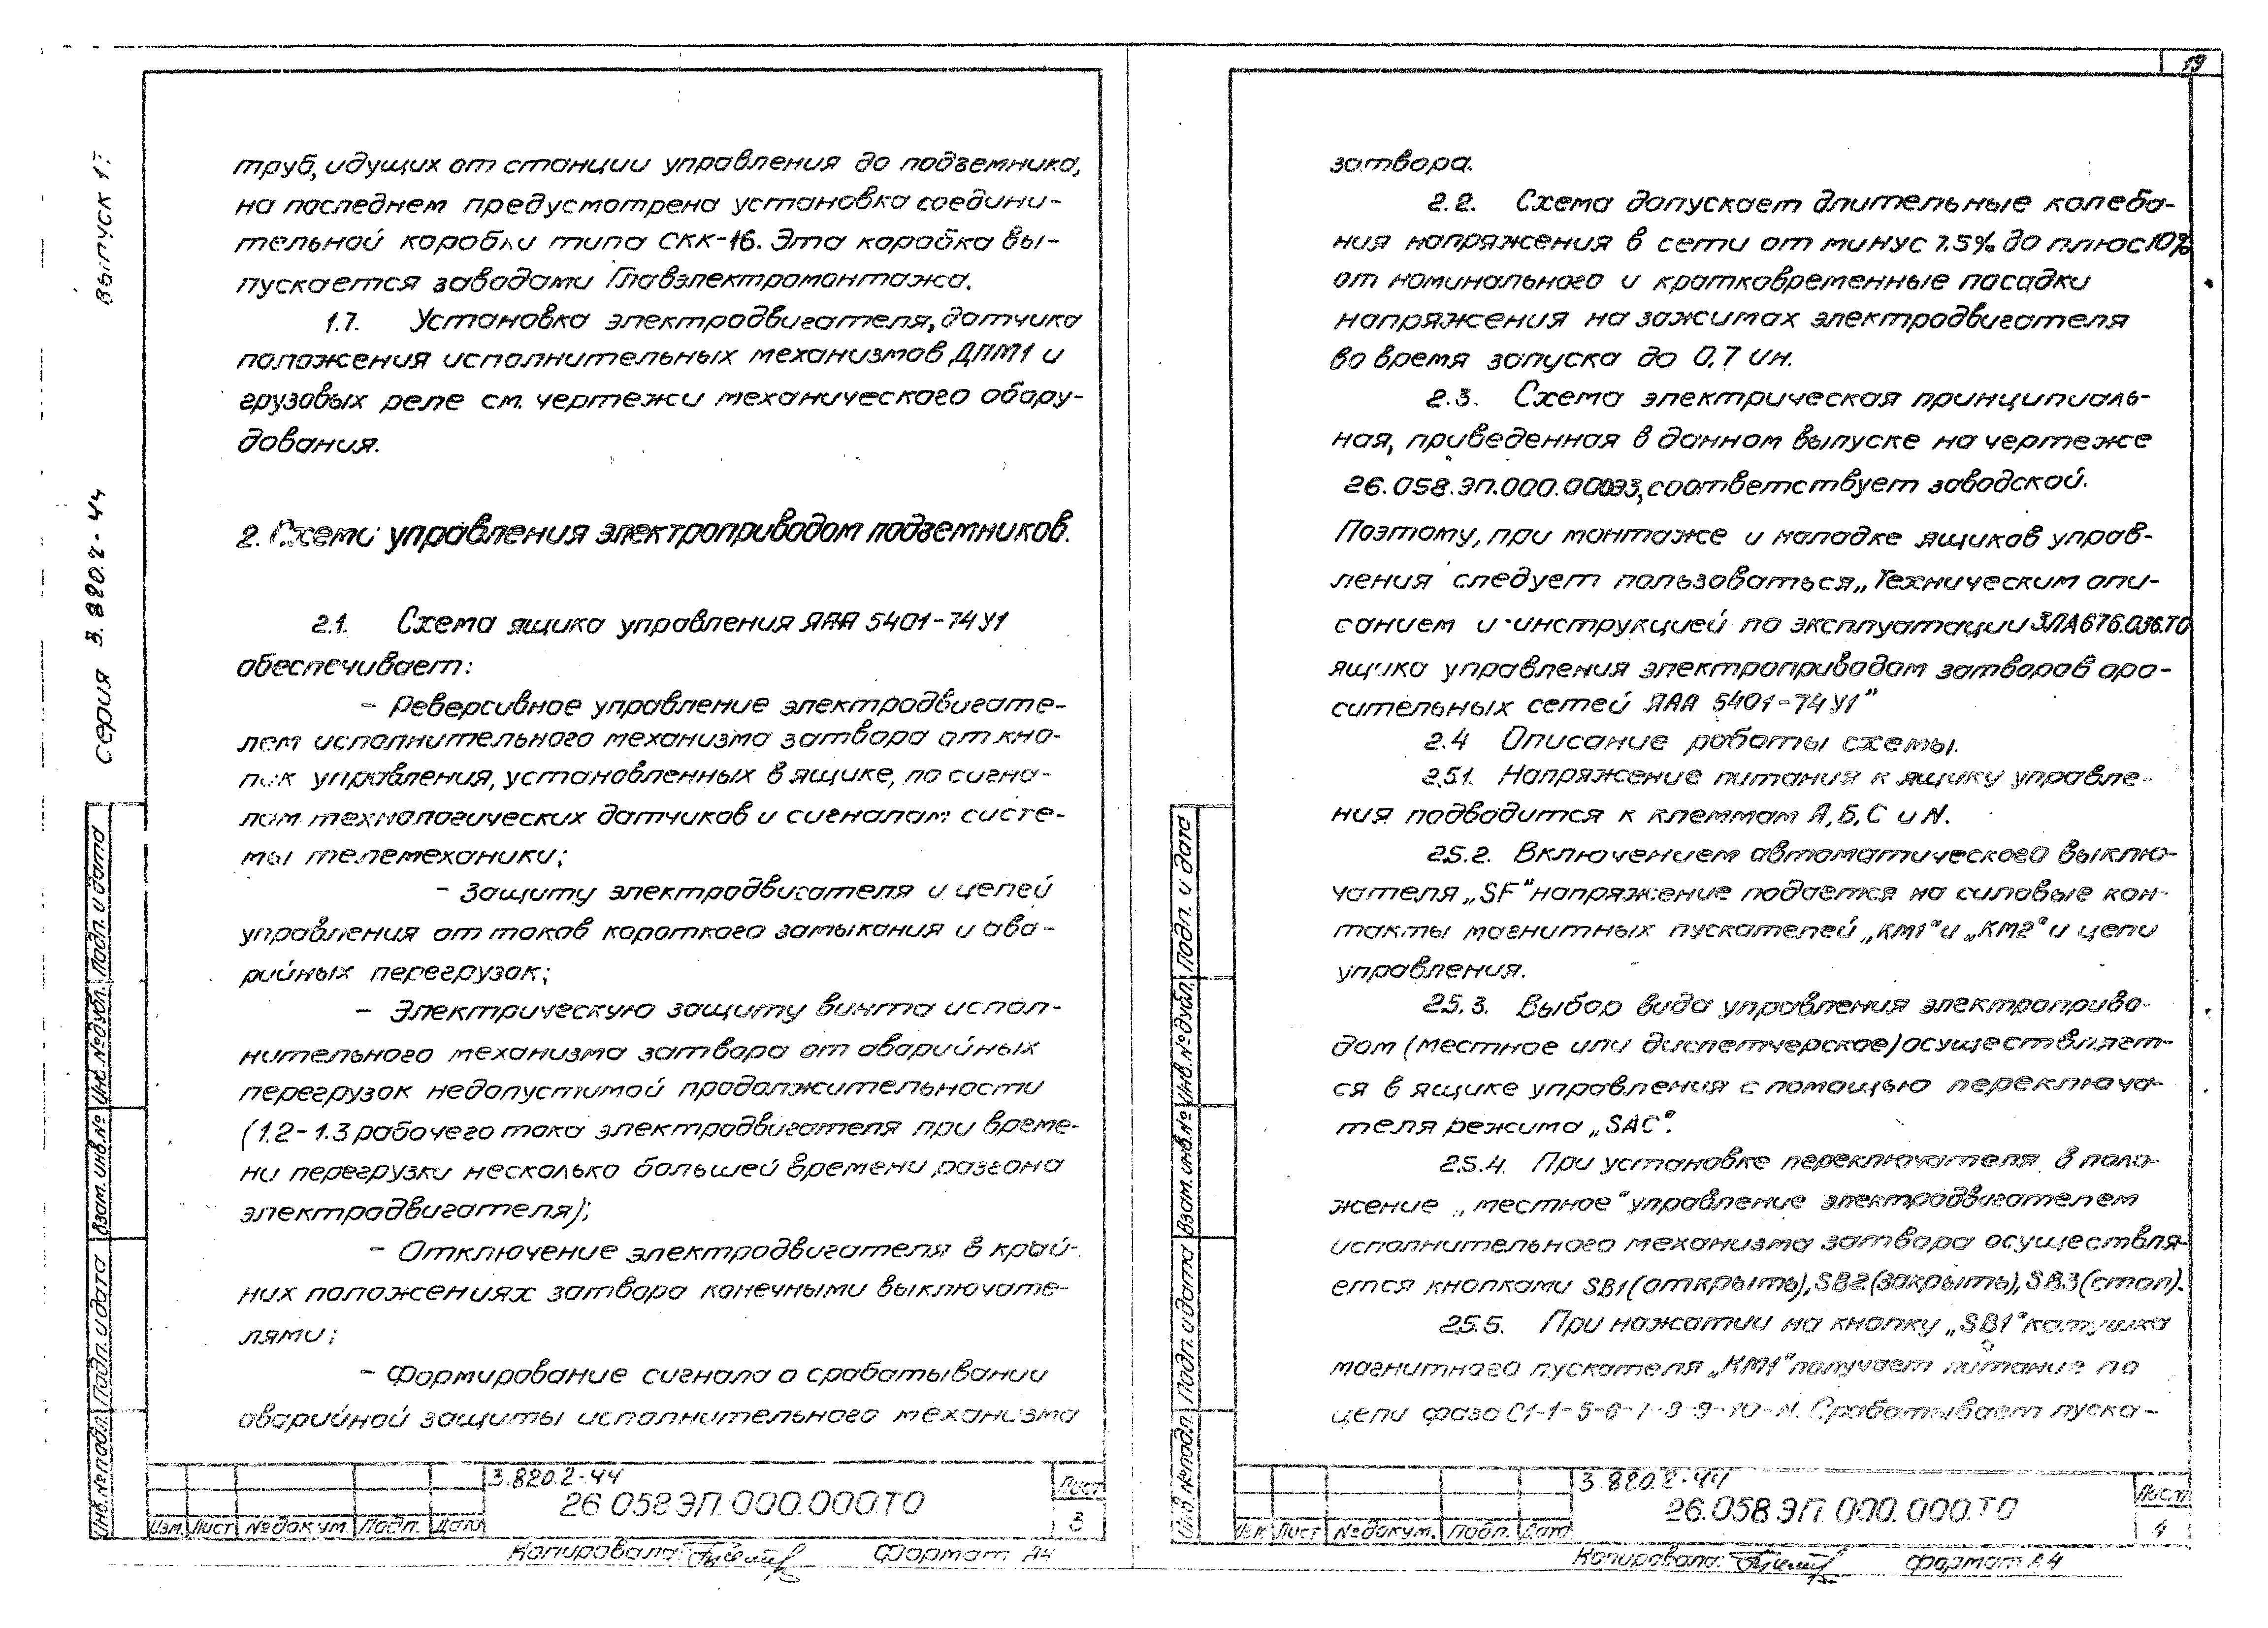 19
выпуск 17
серия 3.820.2-44
труб, идущих от станции управления до подземника,
на последнем предусмотрена установка соедини-
тельной коробки типа СКК-16. Эта коробка вы-
пускается заводами Главэлектромонтажа.
1.7. Установка электродвигателя, датчика
положения исполнительных механизмов ДПМ1 и
грузовых реле см. чертежи механического обору-
дования.
2. Схема управления электроприводом подземников.
2.1. Схема ящика управления ЯАА 5401-74У1
обеспечивает:
- Реверсивное управление электродвигате-
лем исполнительного механизма затвора от кно-
пок управления, установленных в ящике, по сигна-
лам технологических датчиков и сигналам систе-
мы телемеханики;
- Защиту электродвигателя и цепей
управления от токов короткого замыкания и ава-
рийных перегрузок;
- Электрическую защиту винта испол-
нительного механизма затвора от аварийных
перегрузок недопустимой продолжительности
(1.2-1.3 рабочего тока электродвигателя при време-
ни перегрузки несколько большей времени разгона
электродвигателя);
- Отключение электродвигателя в край-
них положениях затвора конечными выключате-
лями;
- Формирование сигнала о срабатывании
аварийной защиты исполнительного механизма
Инв.№подл. Подп. и дата Взам. инв.№ Инв.№дубл. Подп. и дата
3.820.2-44
26.058 ЭП.000.000.ТО
Лист
3
Изм. Лист №докум. Подп. Дата
Копировала: Формат А4
затвора.
2.2. Схема допускает длительные колеба-
ния напряжения в сети от минус 7.5% до плюс 10%
от номинального и кратковременные посадки
напряжения на зажимах электродвигателя
во время запуска до 0,7 Uн.
2.3. Схема электрическая принципиаль-
ная, приведенная в данном выпуске на чертеже
26.058.ЭП.000.000ЭЗ, соответствует заводской.
Поэтому, при монтаже и наладке ящиков управ-
ления следует пользоваться „Техническим опи-
санием и инструкцией по эксплуатации ЗЛА676.036.ТО
ящика управления электроприводом затворов оро-
сительных сетей ЯАА 5401-74У1”
2.4 Описание работы схемы.
2.5.1. Напряжение питания к ящику управле-
ния подводится к клеммам А, Б, С и N.
2.5.2. Включением автоматического выклю-
чателя „SF” напряжение подается на силовые кон-
такты магнитных пускателей „КМ1” и „КМ2” и цепи
управления.
2.5.3. Выбор вида управления электроприво-
дом (местное или диспетчерское) осуществляет-
ся в ящике управления с помощью переключа-
теля режима „SAC”.
2.5.4. При установке переключателя в поло-
жение „местное” управление электродвигателем
исполнительного механизма затвора осуществля-
ется кнопками SB1 (открыть), SB2 (закрыть), SB3 (стоп).
2.5.5. При нажатии на кнопку „SB1” катушка
магнитного пускателя „КМ1” получает питание по
цепи фаза С1-1-5-6-7-8-9-10-N. Срабатывает пуска-
Инв.№подл. Подп. и дата Взам. инв.№ Инв.№дубл. Подп. и дата
3.820.2-44
26.058 ЭП.000.000.ТО
Лист
4
Изм. Лист №докум. Подп. Дата
Копировала: Формат А4